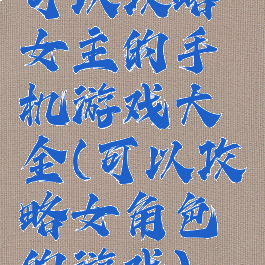 可以攻略
女主的手
机游戏大
全(可以攻
略女角色
的游戏)